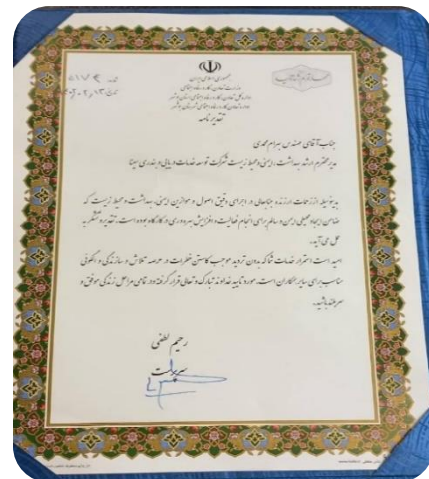 جمهوری اسلامی ایران
وزارت تعاون، کار و رفاه اجتماعی
اداره کل تعاون، کار و رفاه اجتماعی استان بوشهر
تقدیرنامه
جناب آقای مهندس بهرام محمدی
مدیر محترم ارشد بهداشت، ایمنی و محیط زیست شرکت توسعه خدمات دریایی و بندری سینا
بدینوسیله از زحمات ارزنده جنابعالی در اجرای دقیق اصول و موازین ایمنی، بهداشت و محیط زیست که
ضامن ایجاد محیطی ایمن و سالم برای انجام فعالیت و افزایش بهره وری در کارگاه بوده است، تقدیر و تشکر به
عمل می آید.
امید است استمرار خدمات شما که بدون تردید موجب کاستن خطرات در عرصه تلاش و سازندگی و الگوئی
مناسب برای سایر همکاران است، مورد تایید خداوند تبارک و تعالی قرار گرفته و در تمامی مراحل زندگی موفق و
سربلند باشید.
رحیم لطفی
سرپرست